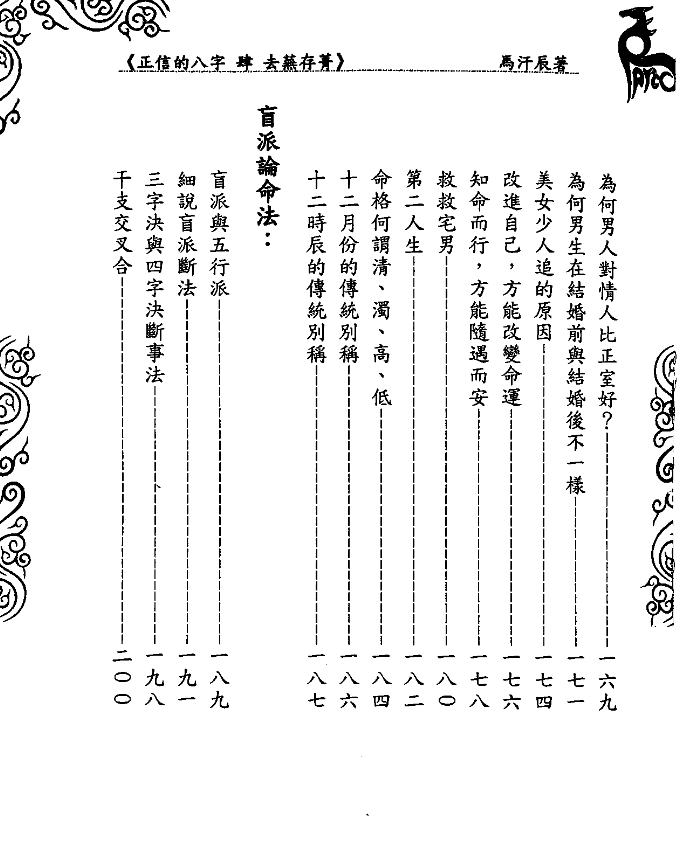 《正信的八字 肆 去蕪存菁》 馬汗辰著
為何男人對情人比正室好？一六九
為何男生在結婚前與結婚後不一樣一七一
美女少人追的原因一七四
改進自己，方能改變命運一七六
知命而行，方能隨遇而安一七八
救救宅男一八〇
第二人生一八二
命格何謂清、濁、高、低一八四
十二月份的傳統別稱一八六
十二時辰的傳統別稱一八七
盲派論命法：
盲派與五行派一八九
細說盲派斷法一九一
三字決與四字決斷事法一九八
干支交叉合二〇〇